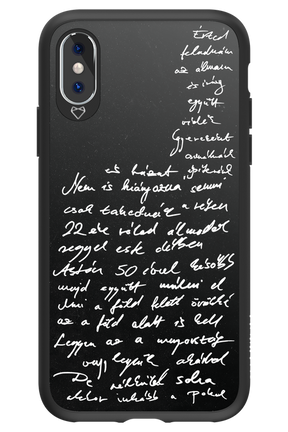 Érted
feladnám
az álmom
és így
együtt
vidék
Gyerekeket
csinálnánk
és házat építenék
Nem is hiányozna semmi
csak takaródzz a télen
22 éve rólad álmodok
reggel este délben
Aztán 50 évvel később
majd együtt múlni el
Mai a föld felett örökké
az a föld alatt is kell
Legyen az a mennyország
vagy legyünk akárhol
De nélküled soha
akkor inkább a Pokol